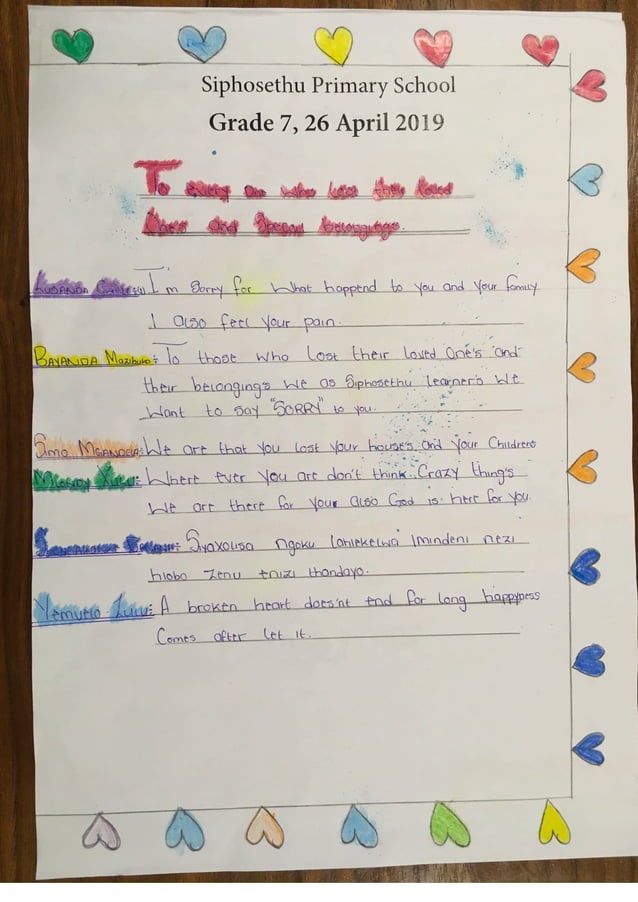 Siphosethu Primary School
Grade 7, 26 April 2019
To every one who lost their loved
One's and Special belongings.
I'm Sorry for What happend to you and your family
I also feel your pain.
BAYANDA Mazibuko: To those who Lost their Loved One's and
their belonging's we as Siphosethu learner's We
Want to say "SORRY" to you.
We are that you Lost your house's and your Childrens
Where ever you are don't think Crazy thing's
We are there for your also God is here for you.
ngoku imindeni nezi
hlobo zenu
A broken heart does'nt end for long happyness
Comes after let it.